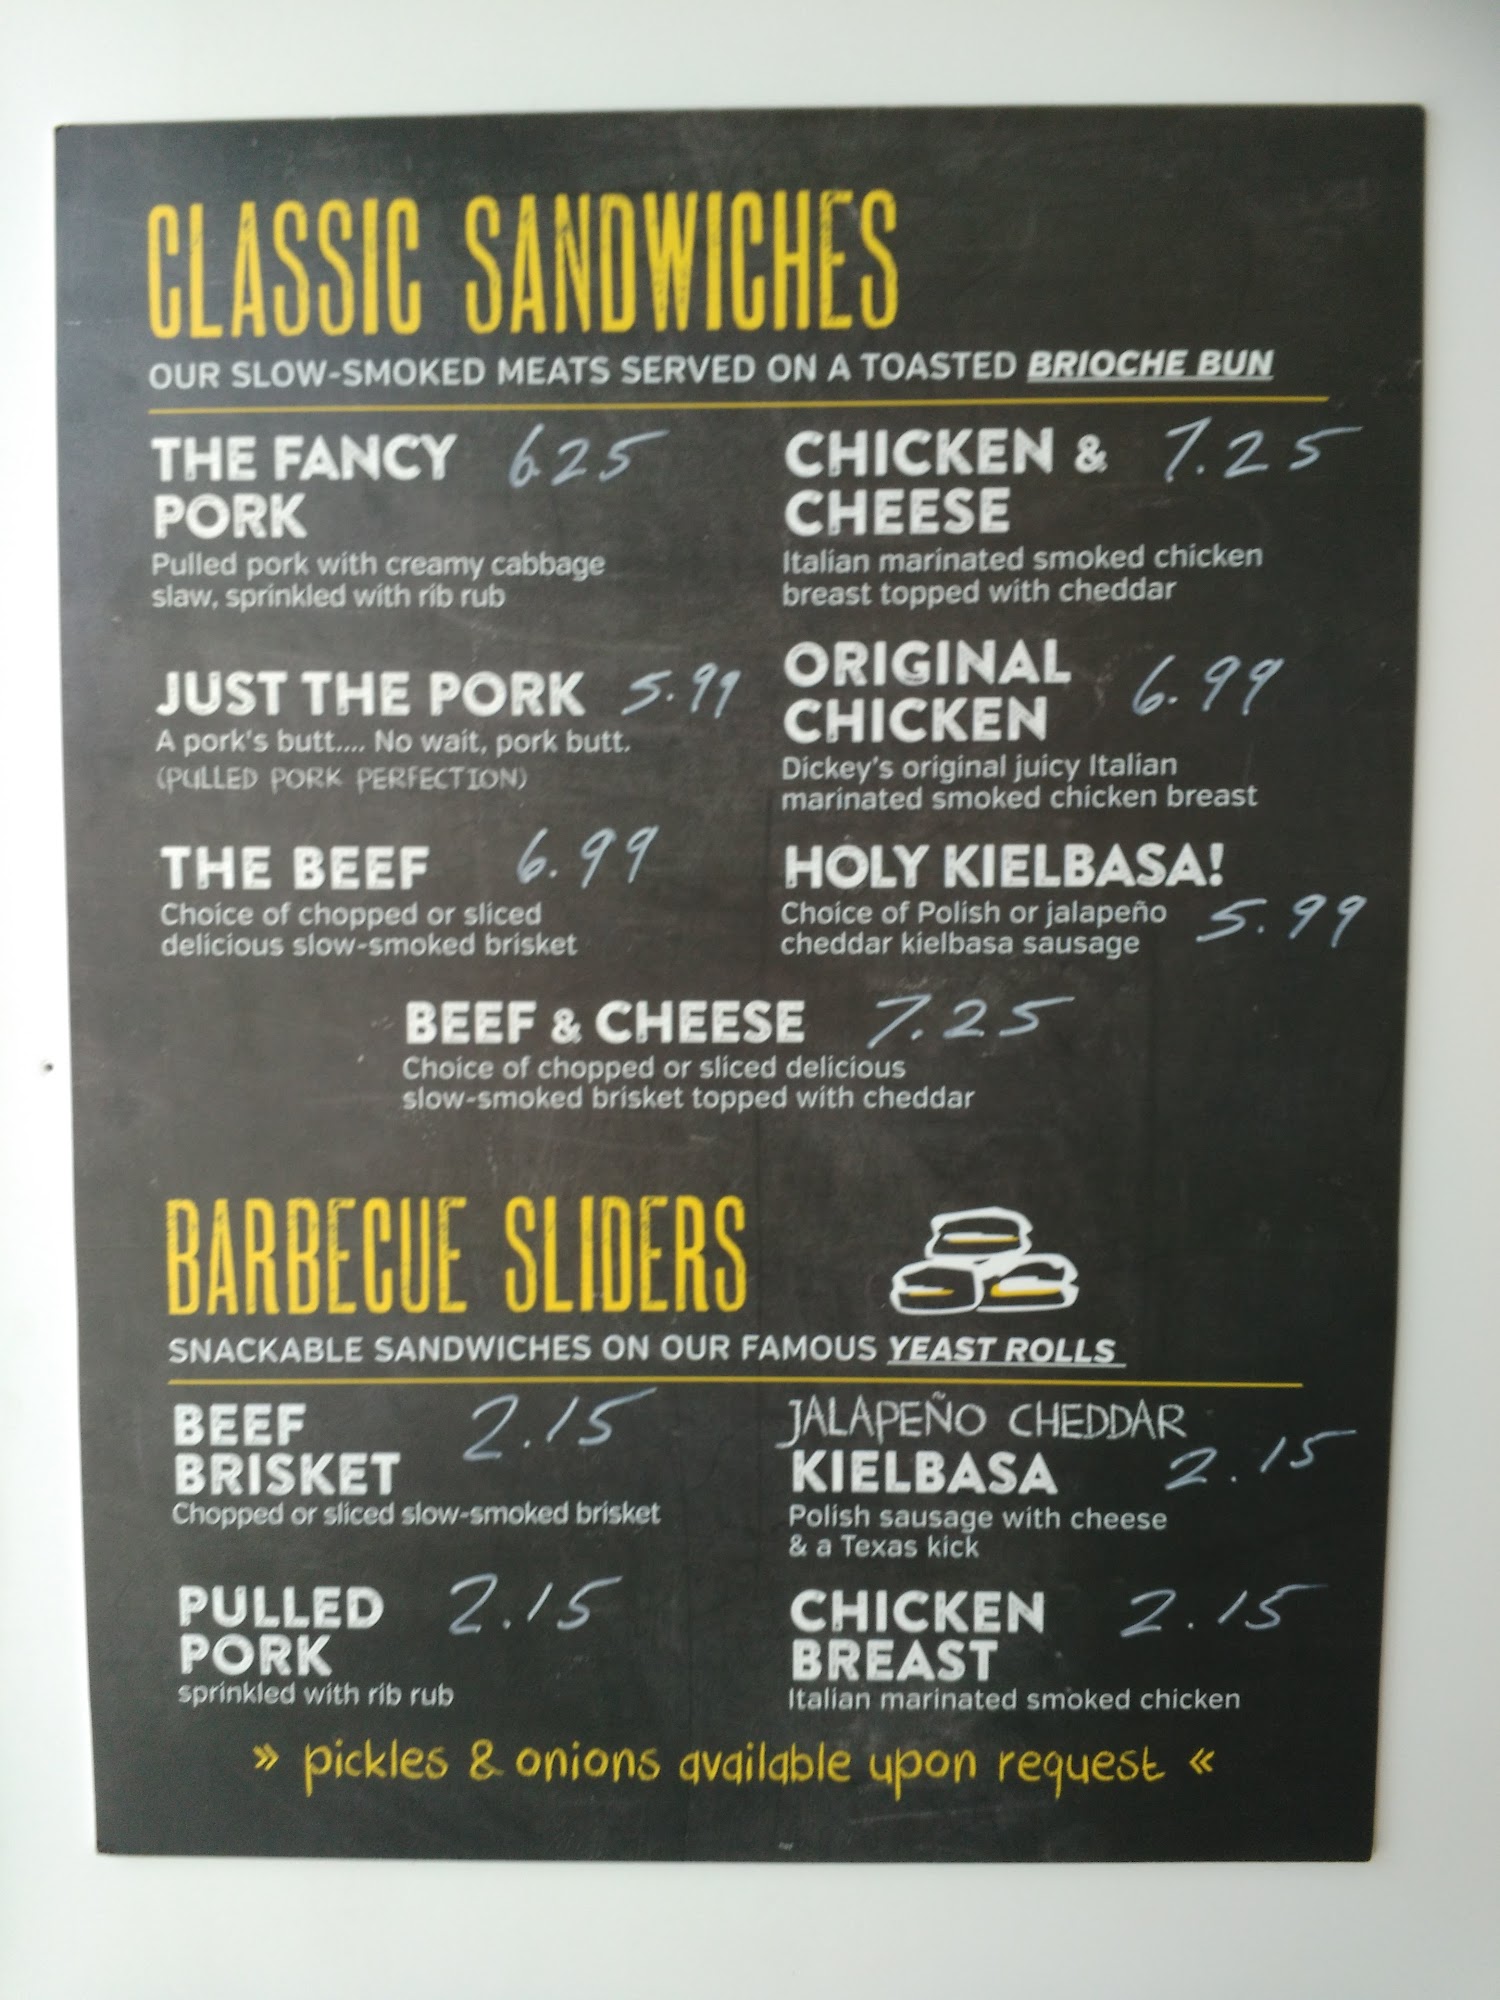 CLASSIC SANDWICHES
OUR SLOW-SMOKED MEATS SERVED ON A TOASTED BRIOCHE BUN
THE FANCY 6.25
PORK
Pulled pork with creamy cabbage
slaw, sprinkled with rib rub
JUST THE PORK 5.99
A pork's butt.... No wait, pork butt.
(PULLED PORK PERFECTION)
THE BEEF 6.99
Choice of chopped or sliced
delicious slow-smoked brisket
CHICKEN & 7.25
CHEESE
Italian marinated smoked chicken
breast topped with cheddar
ORIGINAL
CHICKEN 6.99
Dickey's original juicy Italian
marinated smoked chicken breast
HOLY KIELBASA!
Choice of Polish or jalapeño 5.99
cheddar kielbasa sausage
BEEF & CHEESE 7.25
Choice of chopped or sliced delicious
slow-smoked brisket topped with cheddar
BARBECUE SLIDERS
SNACKABLE SANDWICHES ON OUR FAMOUS YEAST ROLLS
BEEF 2.15
BRISKET
Chopped or sliced slow-smoked brisket
PULLED 2.15
PORK
sprinkled with rib rub
JALAPEÑO CHEDDAR
KIELBASA 2.15
Polish sausage with cheese
& a Texas kick
CHICKEN 2.15
BREAST
Italian marinated smoked chicken
» pickles & onions available upon request «